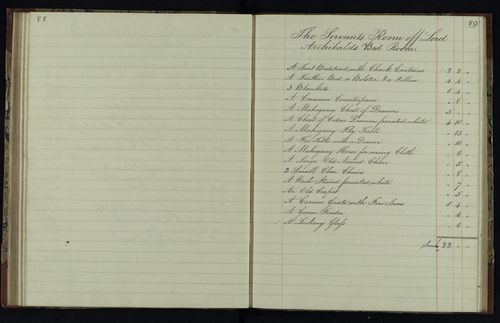 88
89
The Servants Room off Lord
Archibalds Bed Room
A Tent Bedstead with Check Curtains 2 2 -
A Feather Bed a Bolster & a Pillow 4 4 -
3 Blankets 1 4 -
A Common Counterpane - 8 -
A Mahogany Chest of Drawers 5 - -
A Chest of Cedar Drawers painted white 4 10 -
A Mahogany Fly Table - 15 -
A Fir Table with a Drawer - 10 -
A Mahogany Horse for airing Cloths - 6 -
A Large Old Armed Chair - 5 -
2 Small Elm Chairs - 8 -
A Wash Stand painted white - 7 -
An Old Carpet - 5 -
A Common Grate with Fire Irons 1 4 -
A Green Fender - 6 -
A Looking Glass - 6 -
Summa 22 - -